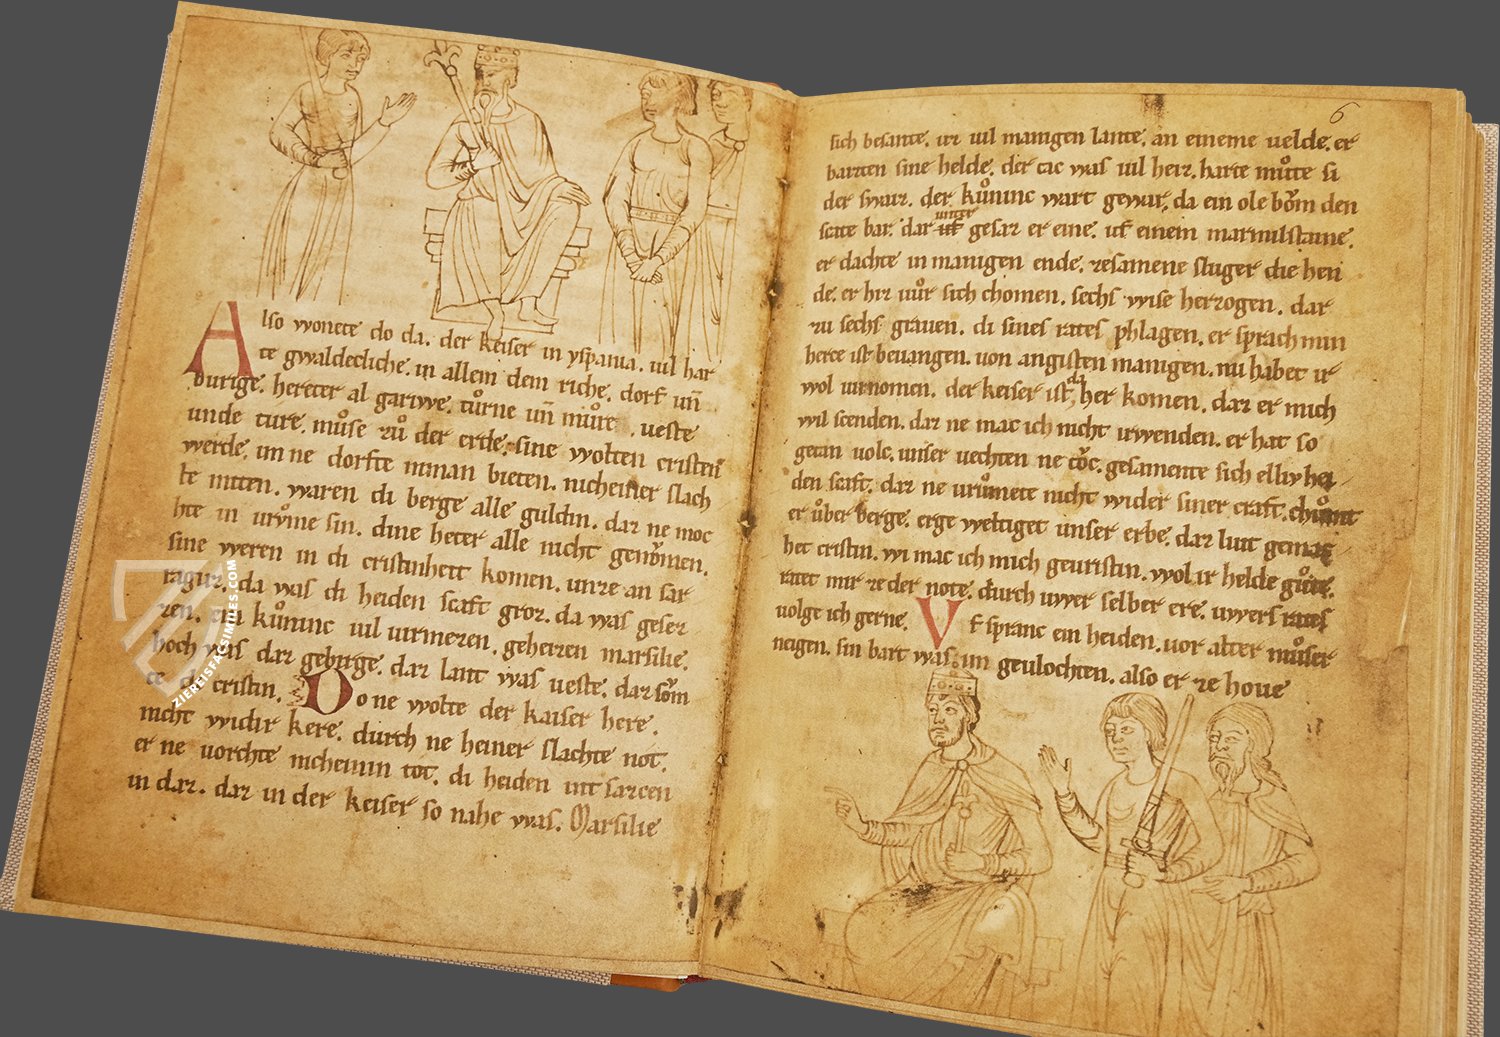 Also wonete do da. der keiser in yspania. uil har
te gwaldecliche. in allem dem riche. dorf un̄
burige. hereter al gariwe. tůrne un̄ můre. ueste
unde ture. můse zů der erde. sine wolten cristen
werde. im ne dorfte niman bieten. nicheiner slach
te miten. waren di berge alle guldin. daz ne moc
hte in urume sin. dine heter alle nicht genomen.
sine weren in di cristinheit komen. unze an sar
raguz. da was di heiden scaft groz. da was gesez
zen. ein kůninc uil uirmezen. geheizen marsilie.
hoch was daz gebirge. daz lant was ueste. daz
te di cristin. Do ne wolte der kaiser here.
nicht widir kere. durch ne heiner slachte not.
er ne uorchte nicheinin tot. di heiden int sazcen
in daz. daz in der keiser so nahe was. Marsilie
6
sich besante. uz uil manigen lante. an eineme uelde. er
baizten sine helde. der tac was uil heiz. harte můte si
der sweiz. der kůninc wart gewar. da ein ole bom den
scate bar. dar unter gesaz er eine. uf einem marmilstaine.
er dachte in manigen ende. zesamene stuger die hen
de. er hiz uůr sich chomen. sechs wise herzogen. dar
zu sechs grauen. di sines rates phlagen. er sprach min
herce ist beuangen. uon angusten manigen. nu habet ir
wol uirnomen. der keiser ist da her komen. daz er mich
wil scenden. daz ne mac ich nicht irwenden. er hat so
getan uolc. unser uechten ne toc. gesamente sich elliv hei
den scaft. daz ne urumete nicht wider siner craft.
er über berge. er ge weltiget unser erbe. daz lut gemac
het cristin. wi mac ich mich geuristin. wol ir helde gůte.
ratet mir ze der note. durch uwer selber ere. uwers rates
uolge ich gerne. Vf spranc ein heiden. uor alter můser
neigen. sin bart was im geulochten. also er ze houe
ZIEREISFACSIMILES.COM